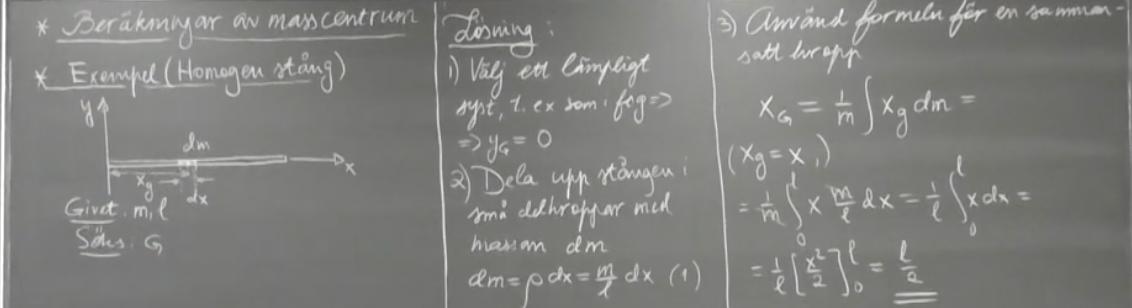 * Beräkningar av masscentrum
* Exempel (Homogen stång)
y
dm
x
x_g
dx
Givet: m, l
Sökes: G
Lösning:
1) Välj ett lämpligt
syst, t. ex som i fig =>
=> y_G = 0
2) Dela upp stången i
små delkroppar med
massan dm
dm = ρ dx = m/l dx (1)
3) Använd formeln för en samman-
satt kropp
x_G = 1/m ∫ x_g dm =
(x_g = x, )
= 1/m ∫_0^l x m/l dx = 1/l ∫_0^l x dx =
= 1/l [x²/2]_0^l = l/2